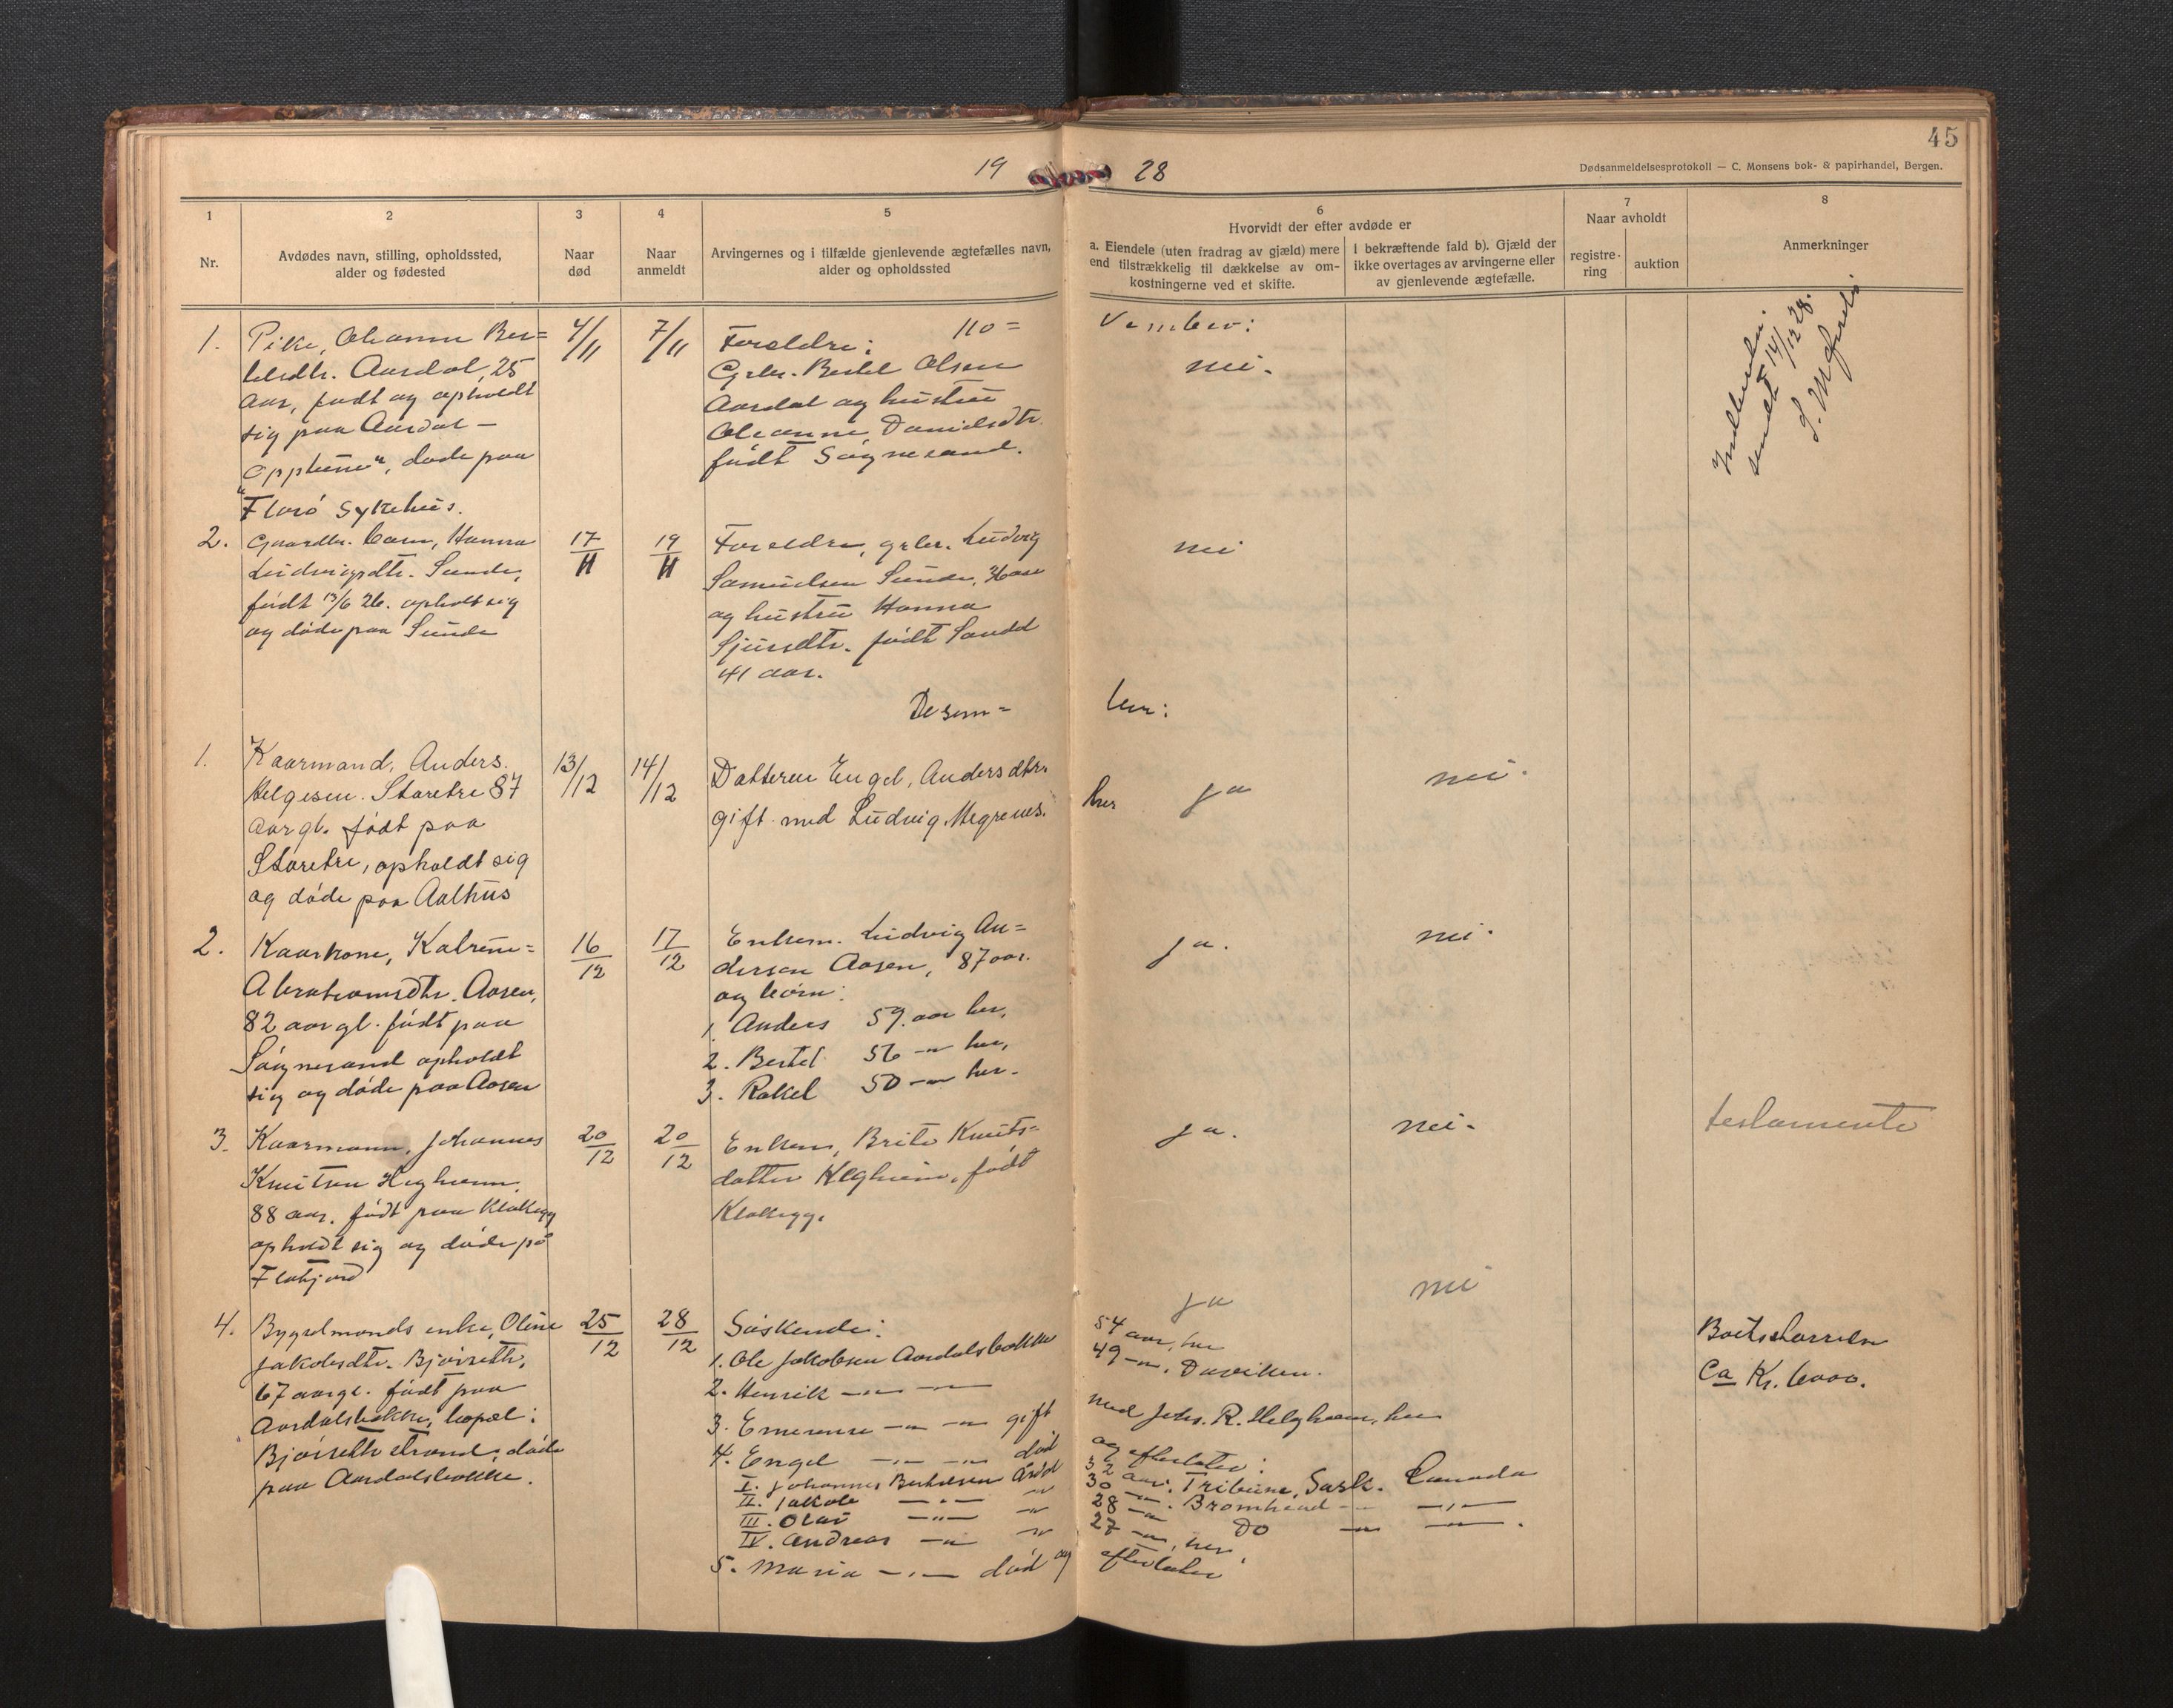 45
19 28
Dødsanmeldelsesprotokoll — C. Monsens bok- & papirhandel, Bergen.
1 2 3 4 5 6 7 8
Nr.
Avdødes navn, stilling, opholdssted,
alder og fødested
Naar
død
Naar
anmeldt
Arvingernes og i tilfælde gjenlevende ægtefælles navn,
alder og opholdssted
Hvorvidt der efter avdøde er
a. Eiendele (uten fradrag av gjæld) mere
end tilstrækkelig til dækkelse av om-
kostningerne ved et skifte.
I bekræftende fald b). Gjæld der
ikke overtages av arvingerne eller
av gjenlevende ægtefælle.
Naar avholdt
registre-
ring
auktion
Anmerkninger
No= vember:
1. Pike, Oleanna Ber=
telsdtr. Aardal, 25
aar, født og opholdt
sig paa Aardal —
"Opptune", døde paa
Florø Sykehus.
4/11
7/11
Foreldre:
Grbr. Bertel Olsen
Aardal og hustru
Oleanne Danielsdtr.
født Søgnesand.
nei.
Indberetn.
sendt 14/12 28.
2. Gaardbr. barn, Hanna
Ludvigsdtr. Sunde,
født 13/6 26. opholt sig
og døde paa Sunde
17/11
19/11
Foreldre, grbr. Ludvig
Samuelsen Sunde, 36 aar
og hustru Hanna
Sjursdtr. født Sandd
41 aar.
nei
Desem= ber:
1. Kaarmand, Anders
Helgesen. Støretre 87
aar gl. født paa
Støretre, opholdt sig
og døde paa Aalhus
13/12
14/12
Datteren Engel, Andersdtr.
gift med Ludvig. Megrenes. her
ja
nei.
2. Kaarkone, Katrine=
Abrahamsdtr. Aasen,
82 aar gl. født paa
Søgnesand opholdt
sig og døde paa Aasen
16/12
17/12
Enkem. Ludvig An=
dersen Aasen, 87 aar.
og børn:
1. Anders 59. aar her,
2. Bertel 56 —"— her,
3. Rakel 50 —"— her.
ja.
nei.
3. Kaarmann, Johannes
Knutsen Helgheim,
88 aar. født paa Klakegg
opholdt sig og døde på
Flatjord
20/12
20/12
Enken, Brite Knuts=
datter Helgheim, født
Klakegg.
ja.
nei.
testamente
4. Bygselmands enke, Oline
Jakobsdtr. Bjørseth,
67 aar gl. født paa
Aardalsbakke, bopæl:
Bjørseth strand; døde
paa Aardalsbakke.
25/12
28/12
ja
nei
Søskende:
1. Ole Jakobsen Aardalsbakke 54 aar, her
2. Henrik —"— —"— 49 —"—. Daviken.
3. Emerense —"— —"— gift med Johs. R. Helgheim, her
4. Engel —"— —"— død og efterlater:
I. Johannes Bertelsen Årdal 32 aar. Tribune, Sask. Canada
II. Jakob —"— —"— 30 —"—. Bromhead —"— —"—
III. Olai —"— —"— 28 —"— Do —"— —"—.
IV. Andreas —"— —"— 27 —"—, her,
5. Maria —"— død og efterlater
Boets størrelse
Ca Kr. 6000.